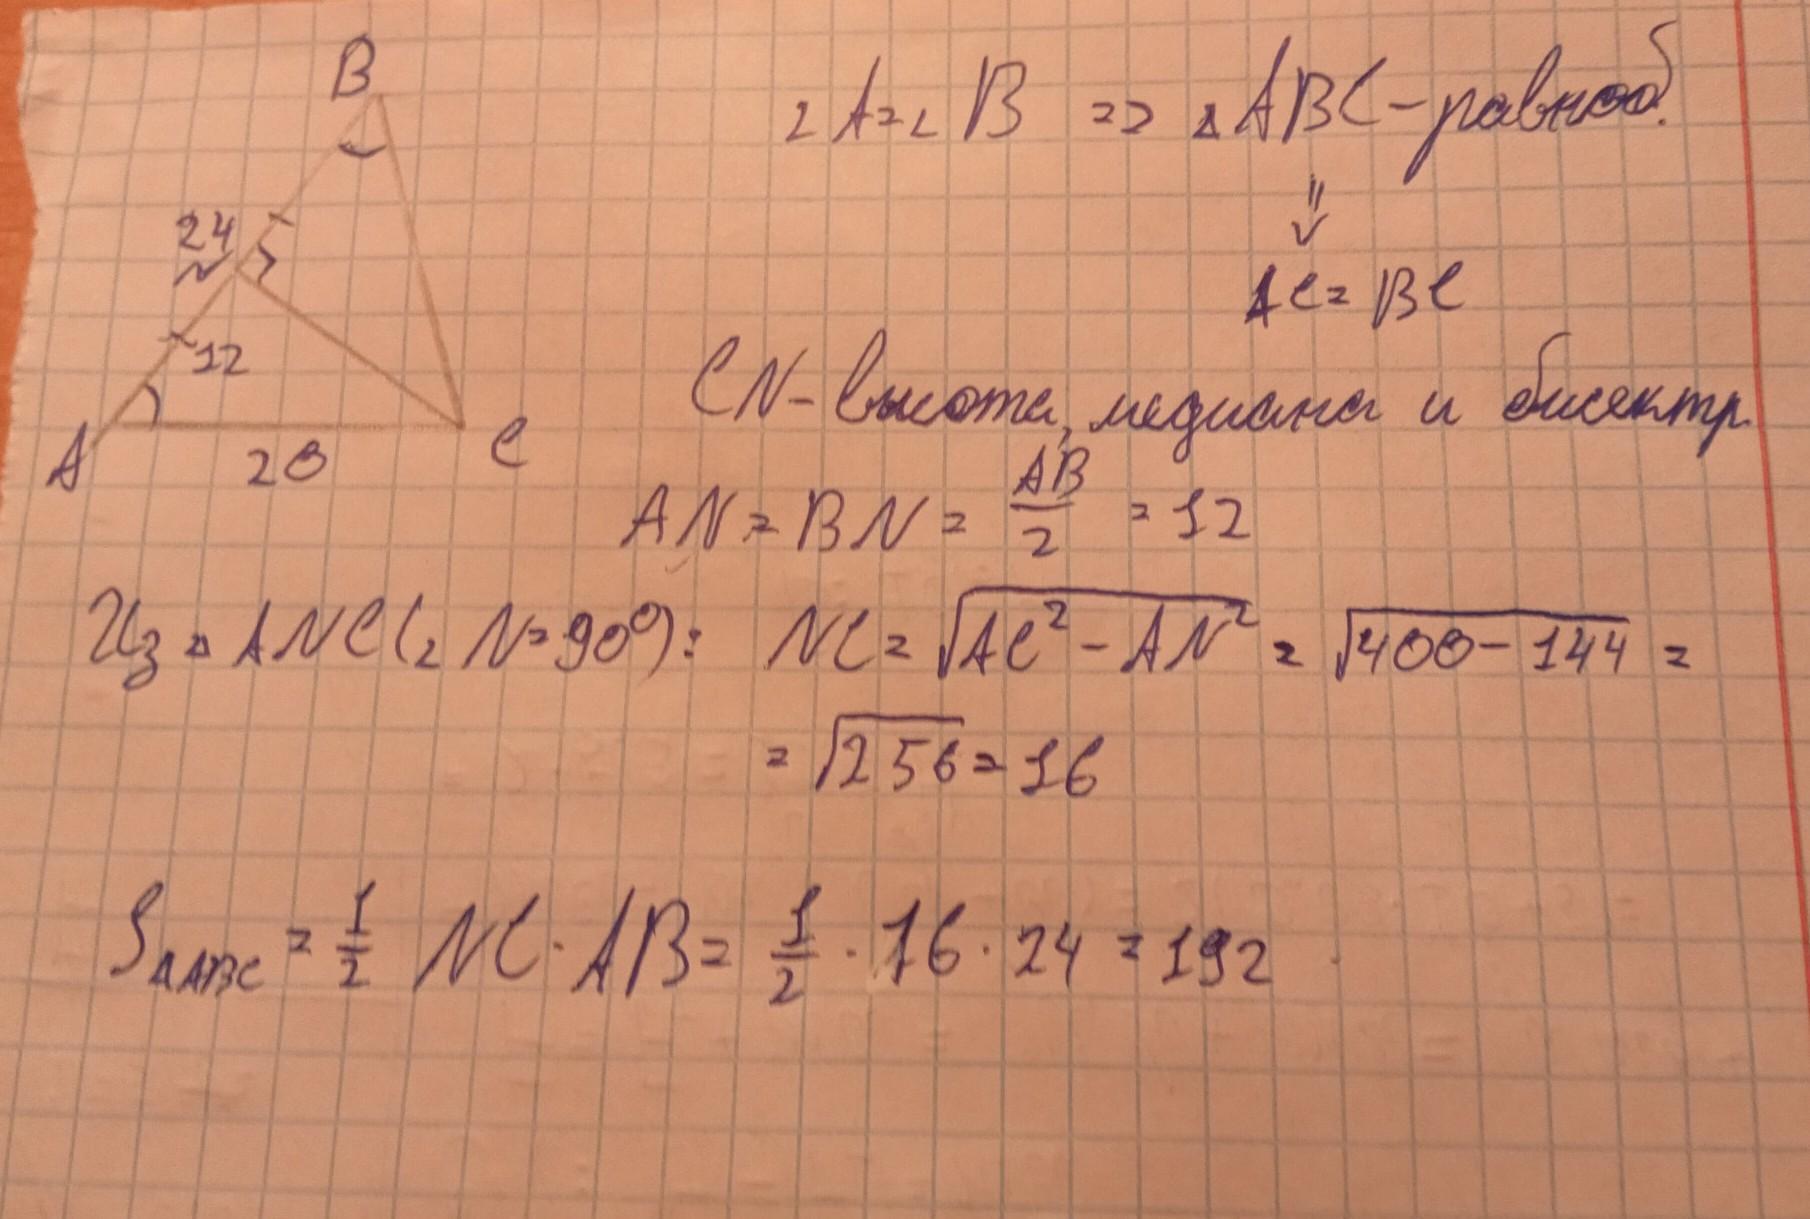 B
∠A=∠B => △ABC-равноб.
24
⇓
N
AC=BC
12
CN-высота, медиана и бисектр.
A
20
C
AN=BN=AB/2=12
Из △ANC(∠N=90°): NC=√(AC²-AN²)=√(400-144)=
=√256=16
S△ABC=1/2 NC·AB=1/2·16·24=192